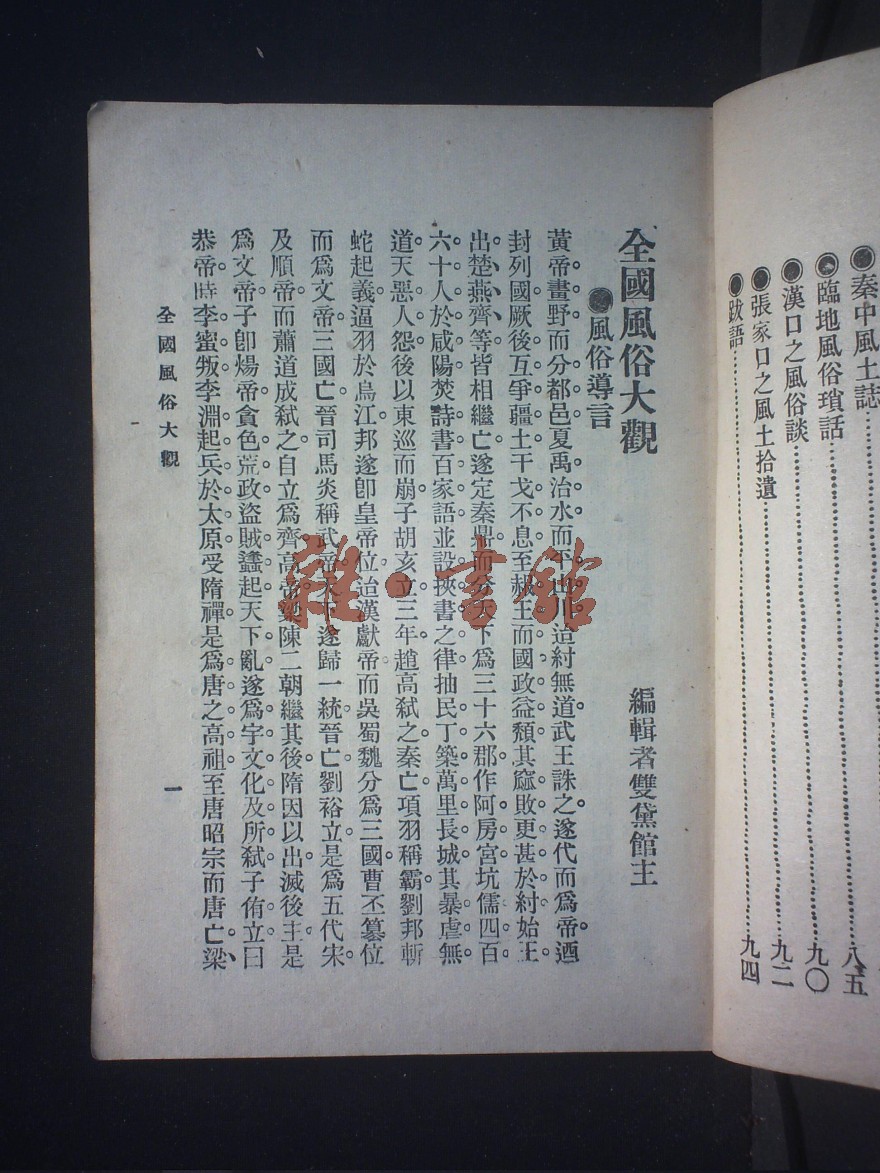 秦中風土誌……八五
臨地風俗瑣話……九〇
漢口之風俗談……九二
張家口之風土拾遺
跋語……九四
全國風俗大觀
編輯者雙黛館主
●風俗導言
黃帝畫野而分都邑。夏禹治水而平山川。迨紂無道武王誅之。遂代而爲帝。迺
封列國。厥後互爭疆土。干戈不息。至赧王而國政益頹。其窳敗更甚於紂。始王
出。楚、燕、齊等皆相繼亡。遂定秦鼎。而分天下爲三十六郡。作阿房宮。坑儒四百
六十人於咸陽。焚詩書百家語。並設挾書之律。抽民丁築萬里長城。其暴虐無
道。天惡人怨。後以東巡而崩。子胡亥立。三年趙高弒之。秦亡。項羽稱霸。劉邦斬
蛇起義。逼羽於烏江。邦遂卽皇帝位。迨漢獻帝而吳蜀魏分爲三國。曹丕簒位
而爲文帝。三國亡。晉司馬炎稱武帝。天下遂歸一統。晉亡。劉裕立。是爲五代宋。
及順帝而蕭道成弒之自立。爲齊高帝。梁陳二朝繼其後。隋因以出。滅後主。是
爲文帝。子卽煬帝。貪色荒政。盜賊蠭起。天下亂。遂爲宇文化及所弒。子侑立。曰
恭帝。時李蜜叛。李淵起兵於太原。受隋禪。是爲唐之高祖。至唐昭宗而唐亡。梁、
全國風俗大觀
一
雜·書館